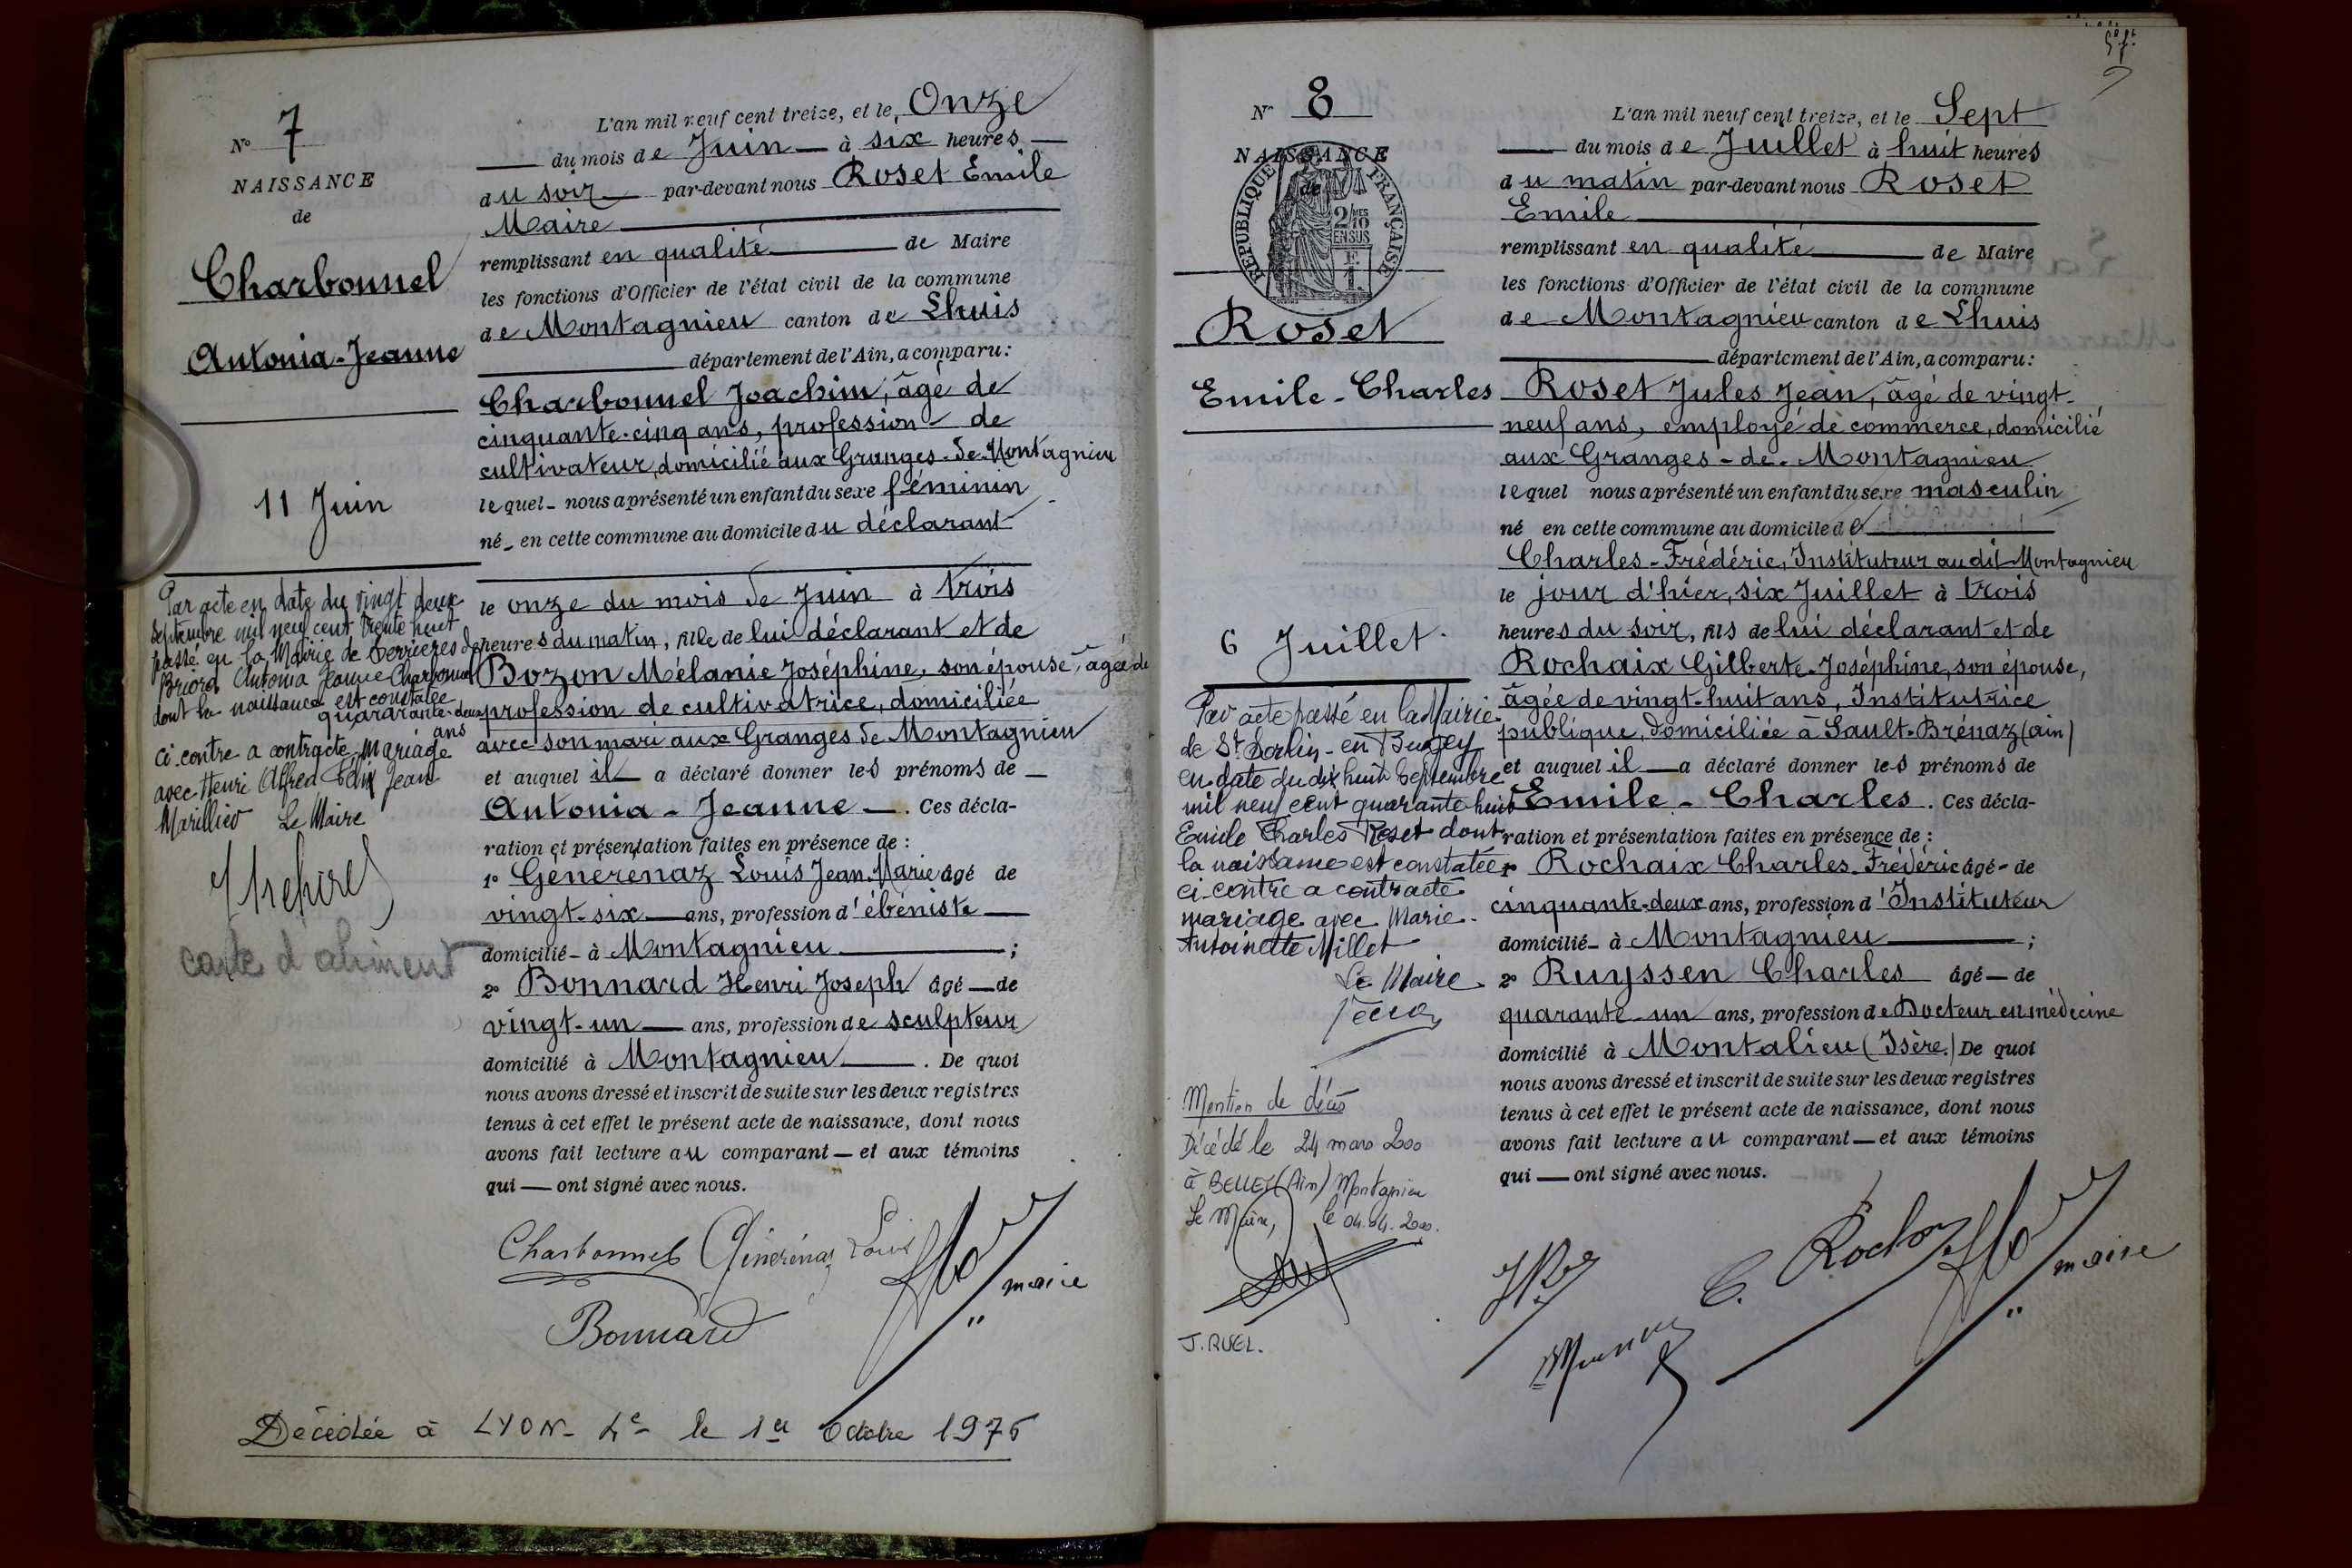 N° 7
NAISSANCE
de
Charbonnel
Antonia-Jeanne
11 Juin
Par acte en date du vingt deux
Septembre mil neuf cent trente huit
passé en la Mairie de Serrières de
Briord Antonia Jeanne Charbonnel
dont la naissance est constatée
ci-contre a contracté mariage
avec Henri Alfred Félix Jean
Marillier Le Maire
carte d'aliment
L'an mil neuf cent treize, et le Onze
du mois de Juin à six heures
du soir par-devant nous Roset Emile
Maire
remplissant en qualité de Maire
les fonctions d'Officier de l'état civil de la commune
de Montagnieu canton de Lhuis
département de l'Ain, a comparu:
Charbonnel Joachim, âgé de
cinquante-cinq ans, profession de
cultivateur, domicilié aux Granges-de-Montagnieu
lequel nous a présenté un enfant du sexe féminin
né en cette commune au domicile du déclarant
le onze du mois de Juin à trois
heures du matin, fille de lui déclarant et de
Bozon Mélanie Joséphine, son épouse, âgée de
quararante-deux ans
profession de cultivatrice, domiciliée
avec son mari aux Granges de Montagnieu
et auquel il a déclaré donner les prénoms de
Antonia-Jeanne. Ces décla-
ration et présentation faites en présence de :
1° Génerenaz Louis Jean-Marie âgé de
vingt-six ans, profession d'ébéniste
domicilié à Montagnieu ;
2° Bonnard Henri Joseph âgé de
vingt-un ans, profession de sculpteur
domicilié à Montagnieu. De quoi
nous avons dressé et inscrit de suite sur les deux registres
tenus à cet effet le présent acte de naissance, dont nous
avons fait lecture au comparant et aux témoins
qui ont signé avec nous.
Charbonnel Génerénaz Louis
maire
Bonnard
Décédée à LYON-4e le 1er Octobre 1976
N° 8
NAISSANCE
de
RÉPUBLIQUE FRANÇAISE
2/10MES
EN SUS
Roset
Emile-Charles
6 Juillet
Par acte passé en la Mairie
de St Sorlin-en Bugey
en date du dix huit Septembre
mil neuf cent quarante huit
Emile Charles Roset dont
la naissance est constatée
ci-contre a contracté
mariage avec Marie-
Antoinette Millet
Le Maire
Mention de décès
Décédé le 24 mars 2000
à BELLEY (Ain) Montagnieu
Le Maire, le 04.04.2000.
J. RUEL.
L'an mil neuf cent treize, et le Sept
du mois de Juillet à huit heures
du matin par-devant nous Roset
Emile
remplissant en qualité de Maire
les fonctions d'Officier de l'état civil de la commune
de Montagnieu canton de Lhuis
département de l'Ain, a comparu:
Roset Jules Jean, âgé de vingt-
neuf ans, employé de commerce, domicilié
aux Granges-de-Montagnieu
lequel nous a présenté un enfant du sexe masculin
né en cette commune au domicile de
Charles-Frédéric, Instituteur au dit Montagnieu
le jour d'hier, six Juillet à trois
heures du soir, fils de lui déclarant et de
Rochaix Gilberte-Joséphine, son épouse,
âgée de vingt-huit ans, Institutrice
publique, domiciliée à Sault-Brénaz (ain)
et auquel il a déclaré donner les prénoms de
Emile-Charles. Ces décla-
ration et présentation faites en présence de :
1° Rochaix Charles-Frédéric âgé de
cinquante-deux ans, profession d'Instituteur
domicilié à Montagnieu ;
2° Ruyssen Charles âgé de
quarante-un ans, profession de Docteur en médecine
domicilié à Montalieu (Isère.) De quoi
nous avons dressé et inscrit de suite sur les deux registres
tenus à cet effet le présent acte de naissance, dont nous
avons fait lecture au comparant et aux témoins
qui ont signé avec nous.
maire